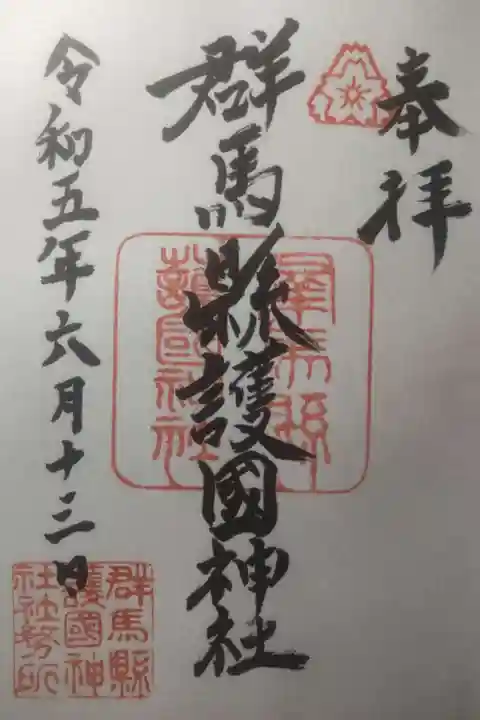 奉拝
群馬縣護國神社
群馬縣
護國神社
令和五年六月十三日
群馬縣
護國神
社社務所